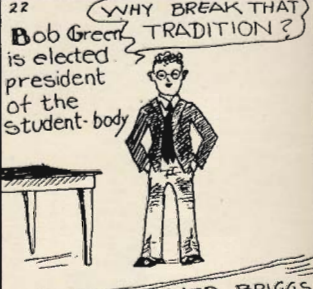 22
WHY BREAK THAT
TRADITION?
Bob Green
is elected
president
of the
student-body
BRIGGS